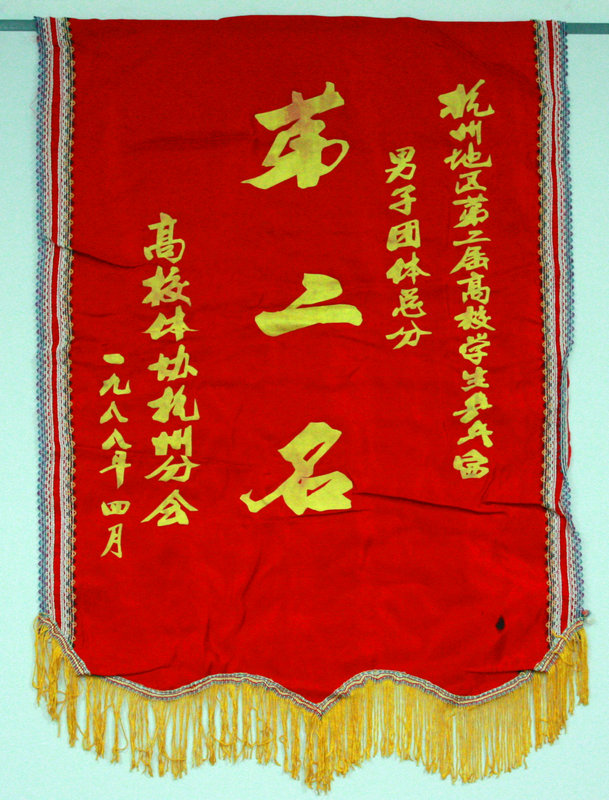 杭州地区第二届高校学生乒乓
男子团体总分
第二名
高校体协杭州分会
一九八八年四月